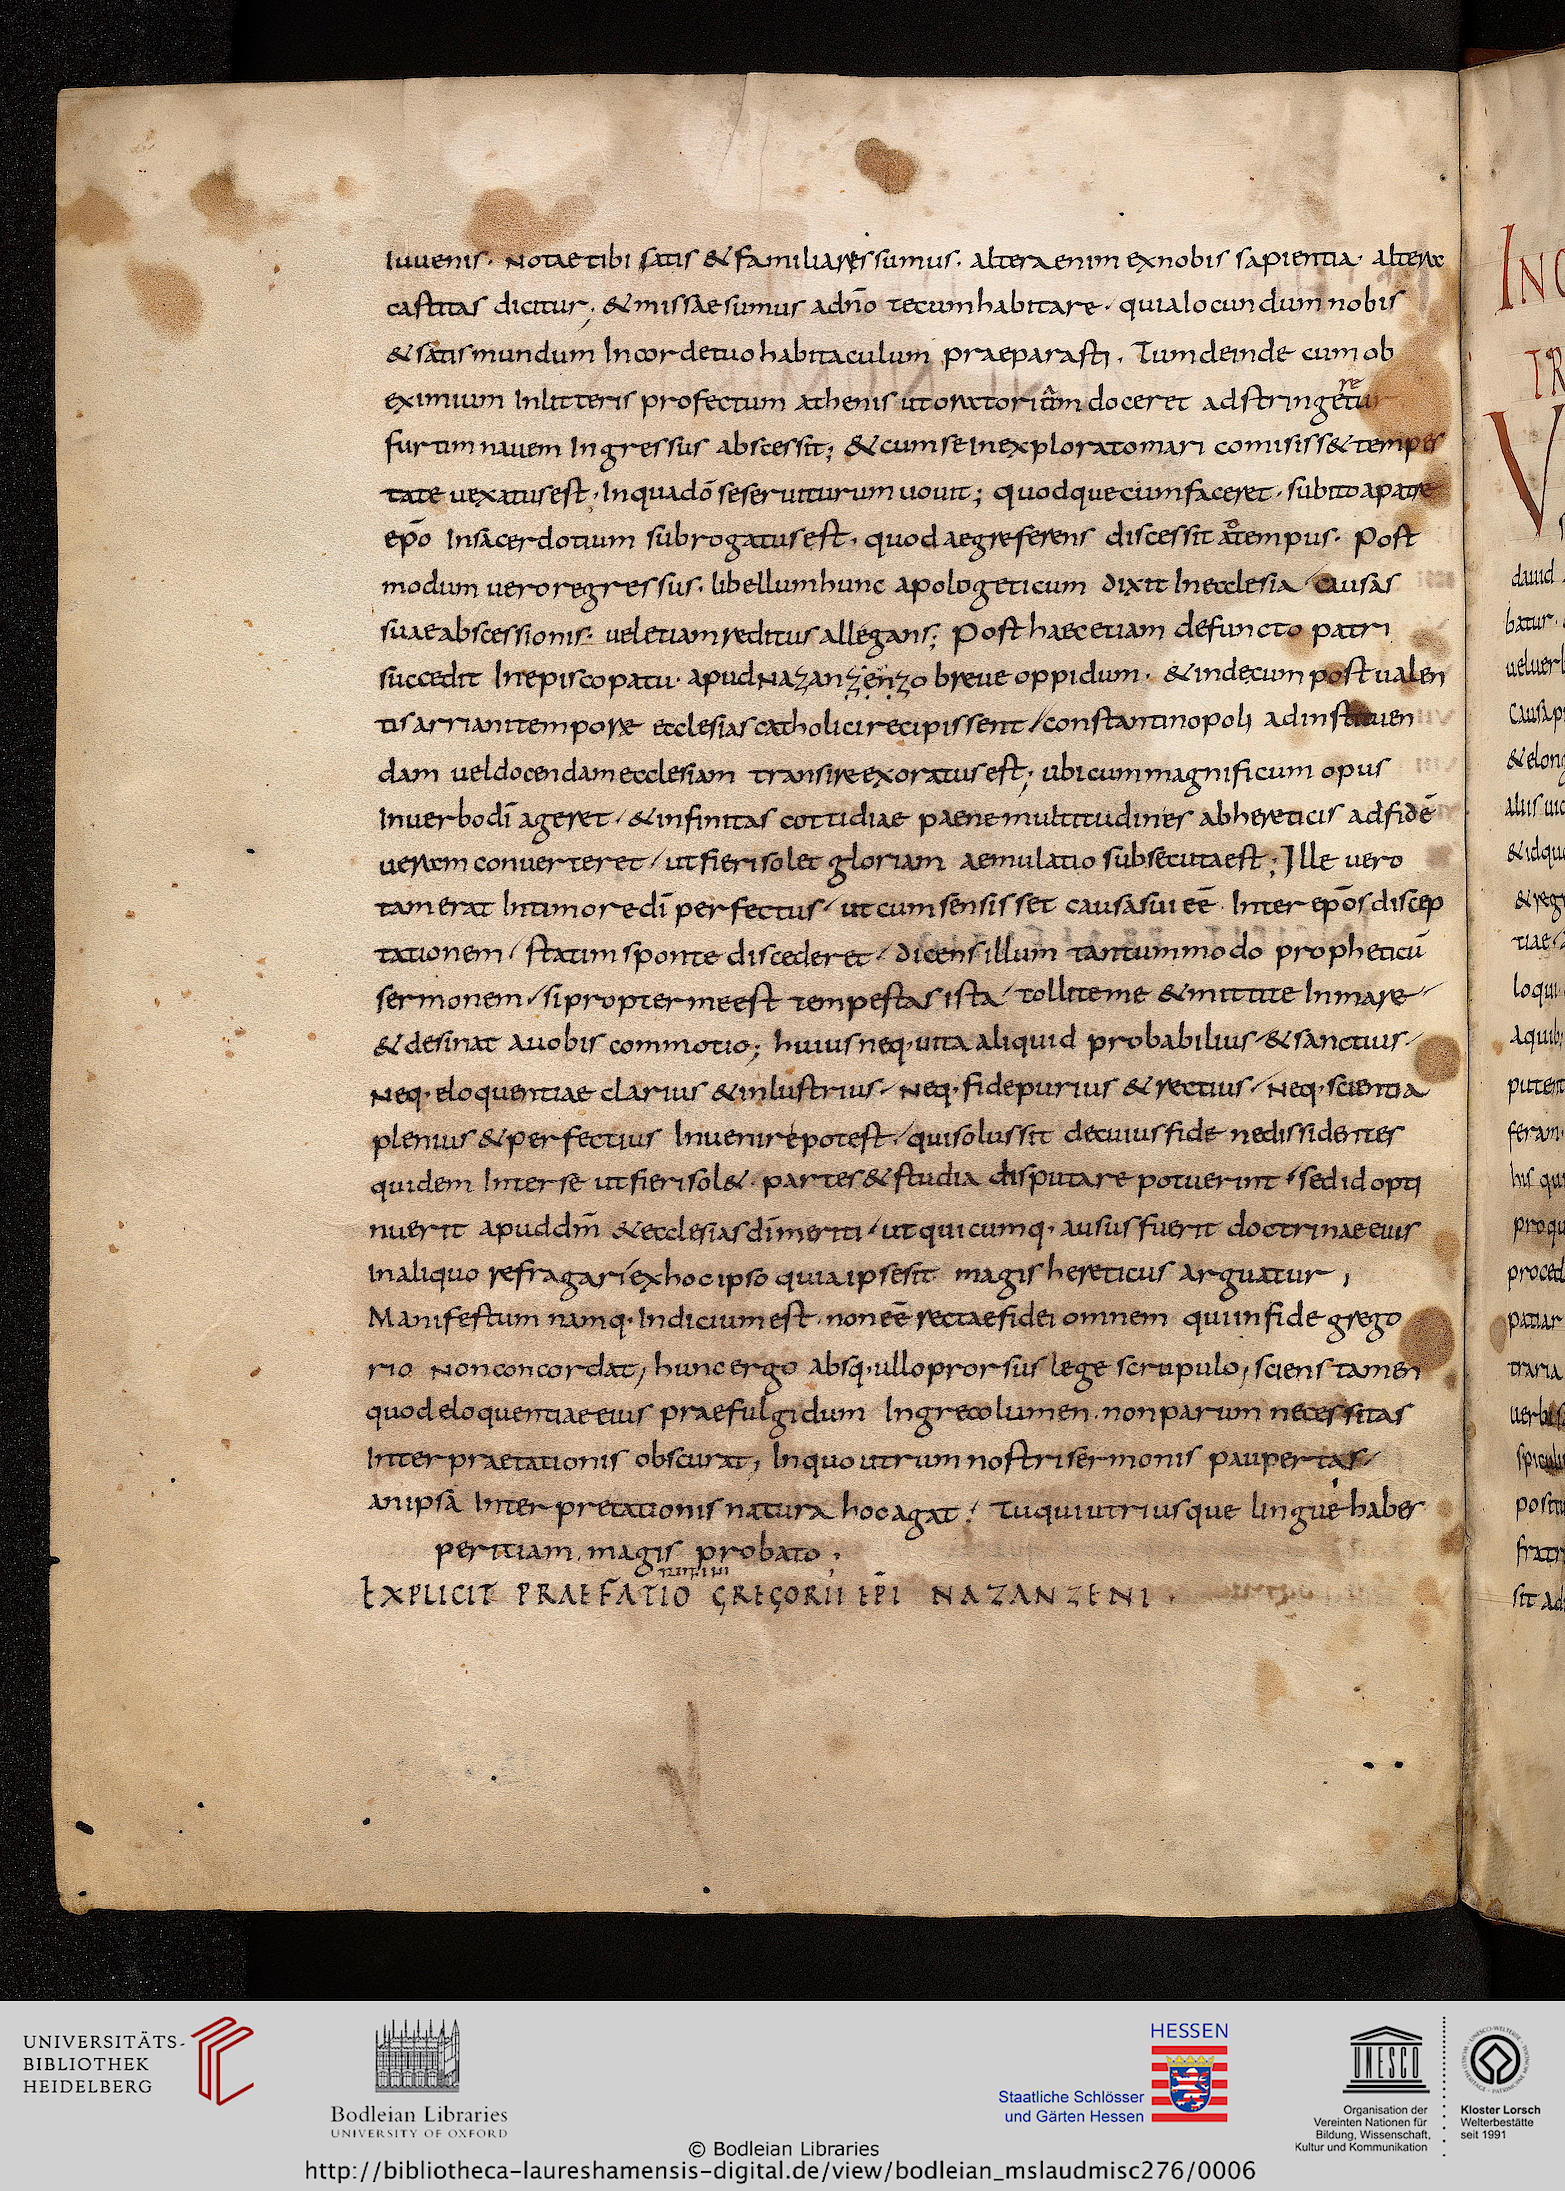 Iuuenis. Notae tibi satis & familiares sumus. altera enim ex nobis sapientia. altera
castitas dicitur; & missae sumus ad nō tecum habitare. quia locundum nobis
& satis mundum In corde tuo habitaculum praeparasti. Tum deinde cum ob
eximium In litteris profectum athenis ut oratoriam doceret adstringeretur
furtim nauem Ingressus abscessit; & cum se Inexplorato mari comisiss& tempes
tate uexatus est. In qua dō se seruiturum uouit; quodque cum faceret. subito a patre
epō In sacerdotium subrogatus est. quod aegre ferens discessit ad tempus. Post
modum uero regressus. libellum hunc apologeticum dixit In ecclesia causas
suae abscessionis. uel etiam reditus allegans; Post haec etiam defuncto patri
succedit In episcopatu. apud Nazanzenzo breue oppidum. & inde cum post ualen
tis arriani tempora ecclesias catholici recipissent constantinopoli ad instituen
dam uel docendam ecclesiam transire exoratus est; ubi cum magnificum opus
In uerbo dī ageret. & infinitas cottidiae paene multitudines ab hereticis ad fidē
ueram conuerteret ut fieri solet gloriam aemulatio subsecuta est; Ille uero
tam erat In timore dī perfectus ut cum sensisset causa sui eē Inter epōs discep
tationem statim sponte discederet dicens illum tantummodo propheticū
sermonem si propter me est tempestas ista tollite me & mittite In mare
& desinat a uobis commotio; huius neq. uita aliquid probabilius & sanctius
Neq. eloquentiae clarius & inlustrius Neq. fide purius & rectius Neq. scientia
plenius & perfectius Inuenire potest qui solus sit de cuius fide ne dissidentes
quidem Inter se ut fieri sol& partes & studia disputare potuerint sed id opti
nuerit apud dm̄ & ecclesias dī meriti ut quicumq. ausus fuerit doctrinae eius
in aliquo refragari ex hoc ipso quia ipse sit magis hereticus arguatur,
Manifestum namq. Indicium est. non eē rectae fidei omnem qui in fide grego
rio Non concordat, hunc ergo absq. ullo prorsus lege scrupulo, sciens tamen
quod eloquentiae eius praefulgidum In greco lumen. non parum necessitas
Interpraetationis obscurat, In quo utrum nostri sermonis paupertas
an ipsa Interpretationis natura hoc agat. Tu qui utriusque lingue habes
peritiam. magis probato;
EXPLICIT PRAEFATIO GREGORII EPĪ NAZANZENI
INC
TR
V
dauid
batur.
causa p
& elong
& idqu
& regr
tiae
loqui
a quib;
putent
feram
his qu
proqu
proced
patiar
traria
uerb
positu
fratr
sit ad
UNIVERSITÄTS-
BIBLIOTHEK
HEIDELBERG
Bodleian Libraries
UNIVERSITY OF OXFORD
HESSEN
Staatliche Schlösser
und Gärten Hessen
UNESCO
Organisation der
Vereinten Nationen für
Bildung, Wissenschaft,
Kultur und Kommunikation
Kloster Lorsch
Welterbestätte
seit 1991
© Bodleian Libraries
http://bibliotheca-laureshamensis-digital.de/view/bodleian_mslaudmisc276/0006